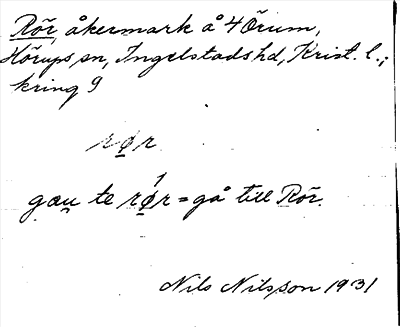 Rör, åkermark å 4 Örum,
Hörups sn, Ingelstads hd, Krist. l.;
kring 9
rø̱r
gau̱ te rǿ̱r = gå till Rör.
Nils Nilsson 1931